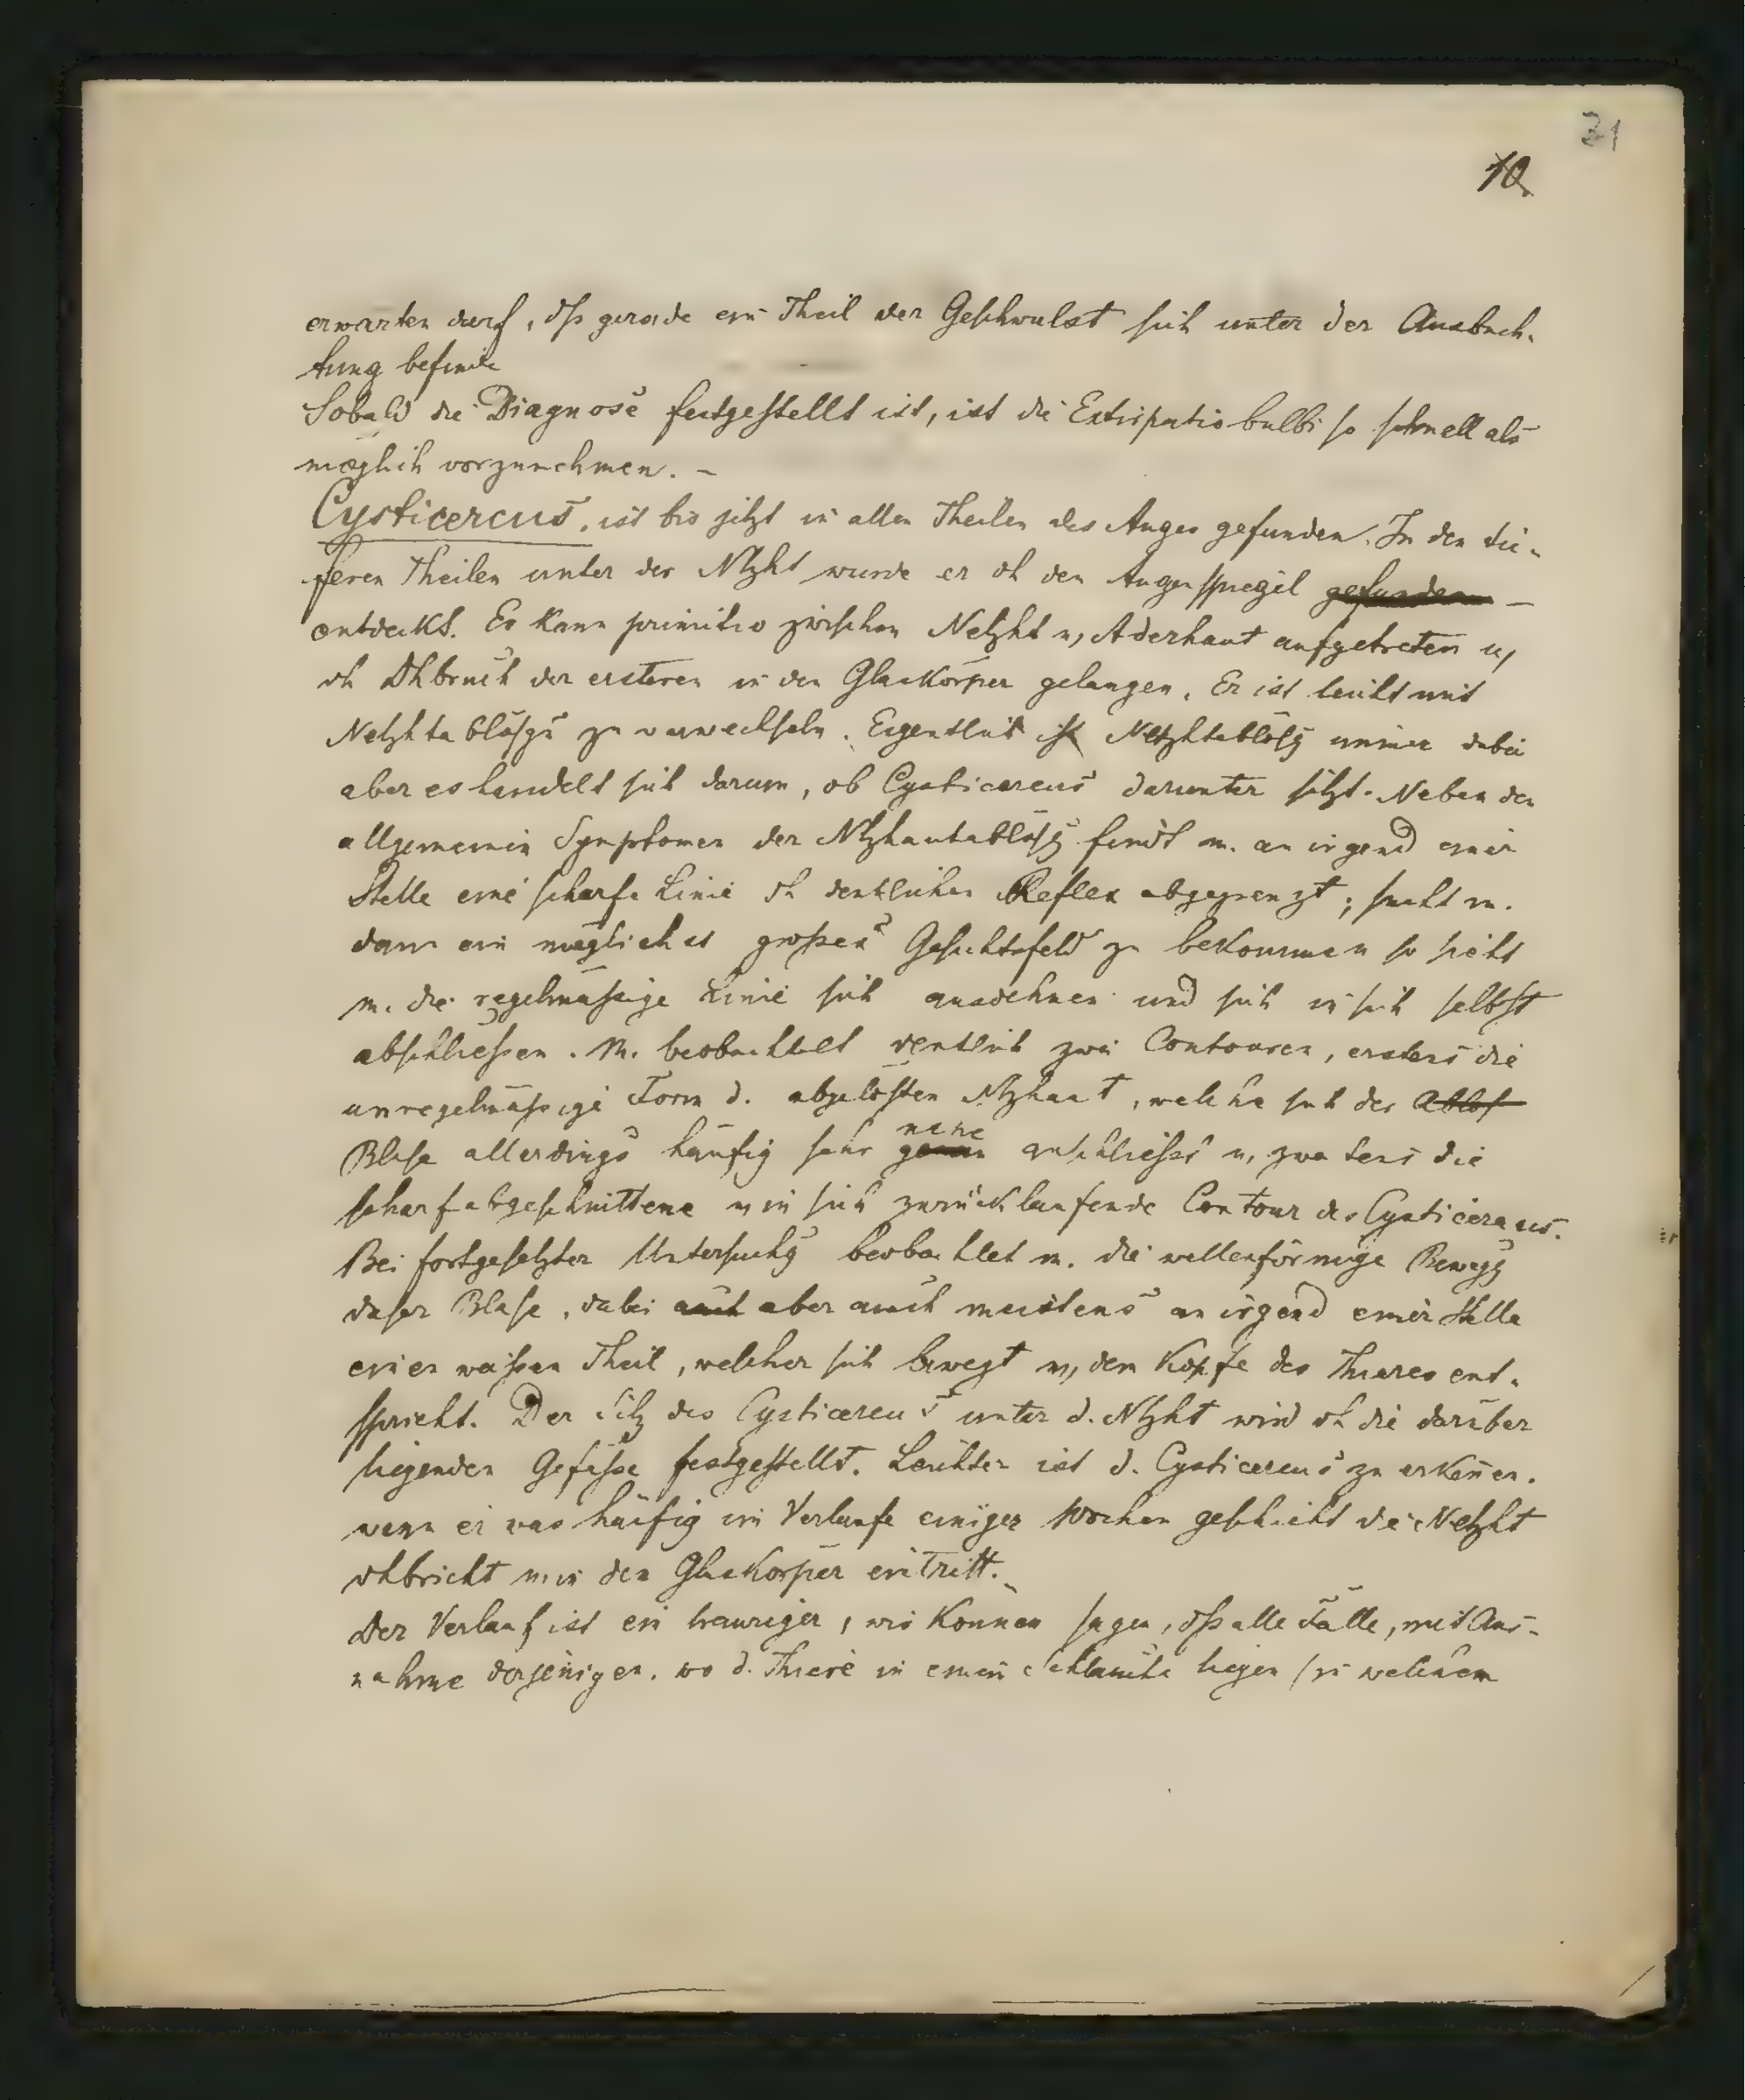 31
10
erwarten darf, dß gerade ein Theil der Geschwulst sich unter der Ausbuch-
tung befinde
Sobald die Diagnose festgestellt ist, ist die Extirpatio bulbi so schnell als
möglich vorzunehmen. –
Cysticercus, ist bis jetzt in allen Theilen des Auges gefunden. In den tie-
feren Theilen unter der Ntzht wurde er dh den Augenspiegel gefunden –
entdeckt. Er kann primitiv zwischen Netzht u, Aderhaut aufgetreten u,
dh Dhbruch der ersteren in den Glaskörper gelangen. Er ist leicht mit
Netzhtablösgn zu verwechseln. Eigentlich ist Netzhtablösg immer dabei
aber es handelt sich darum, ob Cysticercus darunter sitzt. Neben den
allgemeinen Symptomen der Ntzhautablösg findt m. an irgend einer
Stelle eine scharfe Linie dh deutlichen Reflex abgegrenzt; sucht m.
dann ein möglichst großes Gesichtsfeld zu bekommen so sieht
m. die regelmässige Linie sich ausdehnen und sich in sich selbst
abschliessen. M. beobachtet deutlich zwei Contouren, erstens die
unregelmässige Form d. abgelösten Ntzhaut, welche sich der Ablös
Blase allerdings häufig sehr genau nahe anschliesst u, zweitens die
scharf abgeschnittene u in sich zurücklaufende Contour des Cysticercus.
Bei fortgesetzter Untersuchg beobachtet m. die wellenförmige Bewegg
dieser Blase, dabei auch aber auch meistens an irgend einer Stelle
einen weißen Theil, welcher sich bewegt u, dem Kopfe des Thieres ent-
spricht. Der Sitz des Cysticercus unter d. Ntzht wird dh die darüber
liegenden Gefässe festgestellt. Leichter ist d. Cysticercus zu erkennen.
wenn er was häufig im Verlaufe einiger Wochen geschieht die Netzht
dhbricht u in den Glaskörper eintritt.
Der Verlauf ist ein trauriger, wir können sagen, dß alle Fälle, mit Aus-
nahme derjenigen. wo d. Thiere in einem Schlauche liegen (in welchem